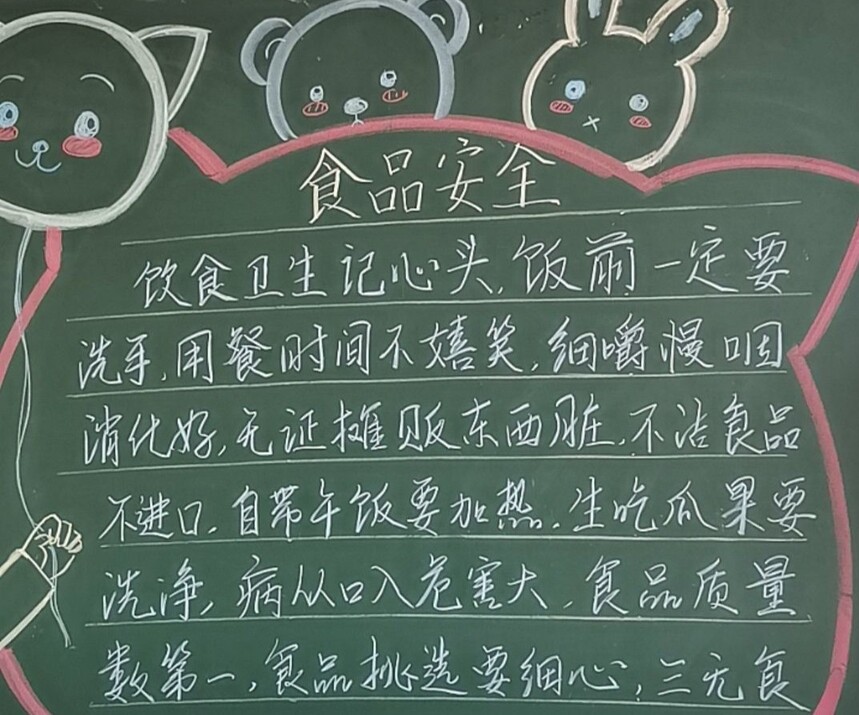 食品安全
饮食卫生记心头,饭前一定要
洗手,用餐时间不嬉笑,细嚼慢咽
消化好,无证摊贩东西脏,不沾食品
不进口,自带午饭要加热,生吃瓜果要
洗净,病从口入危害大,食品质量
数第一,食品挑选要细心,三无食